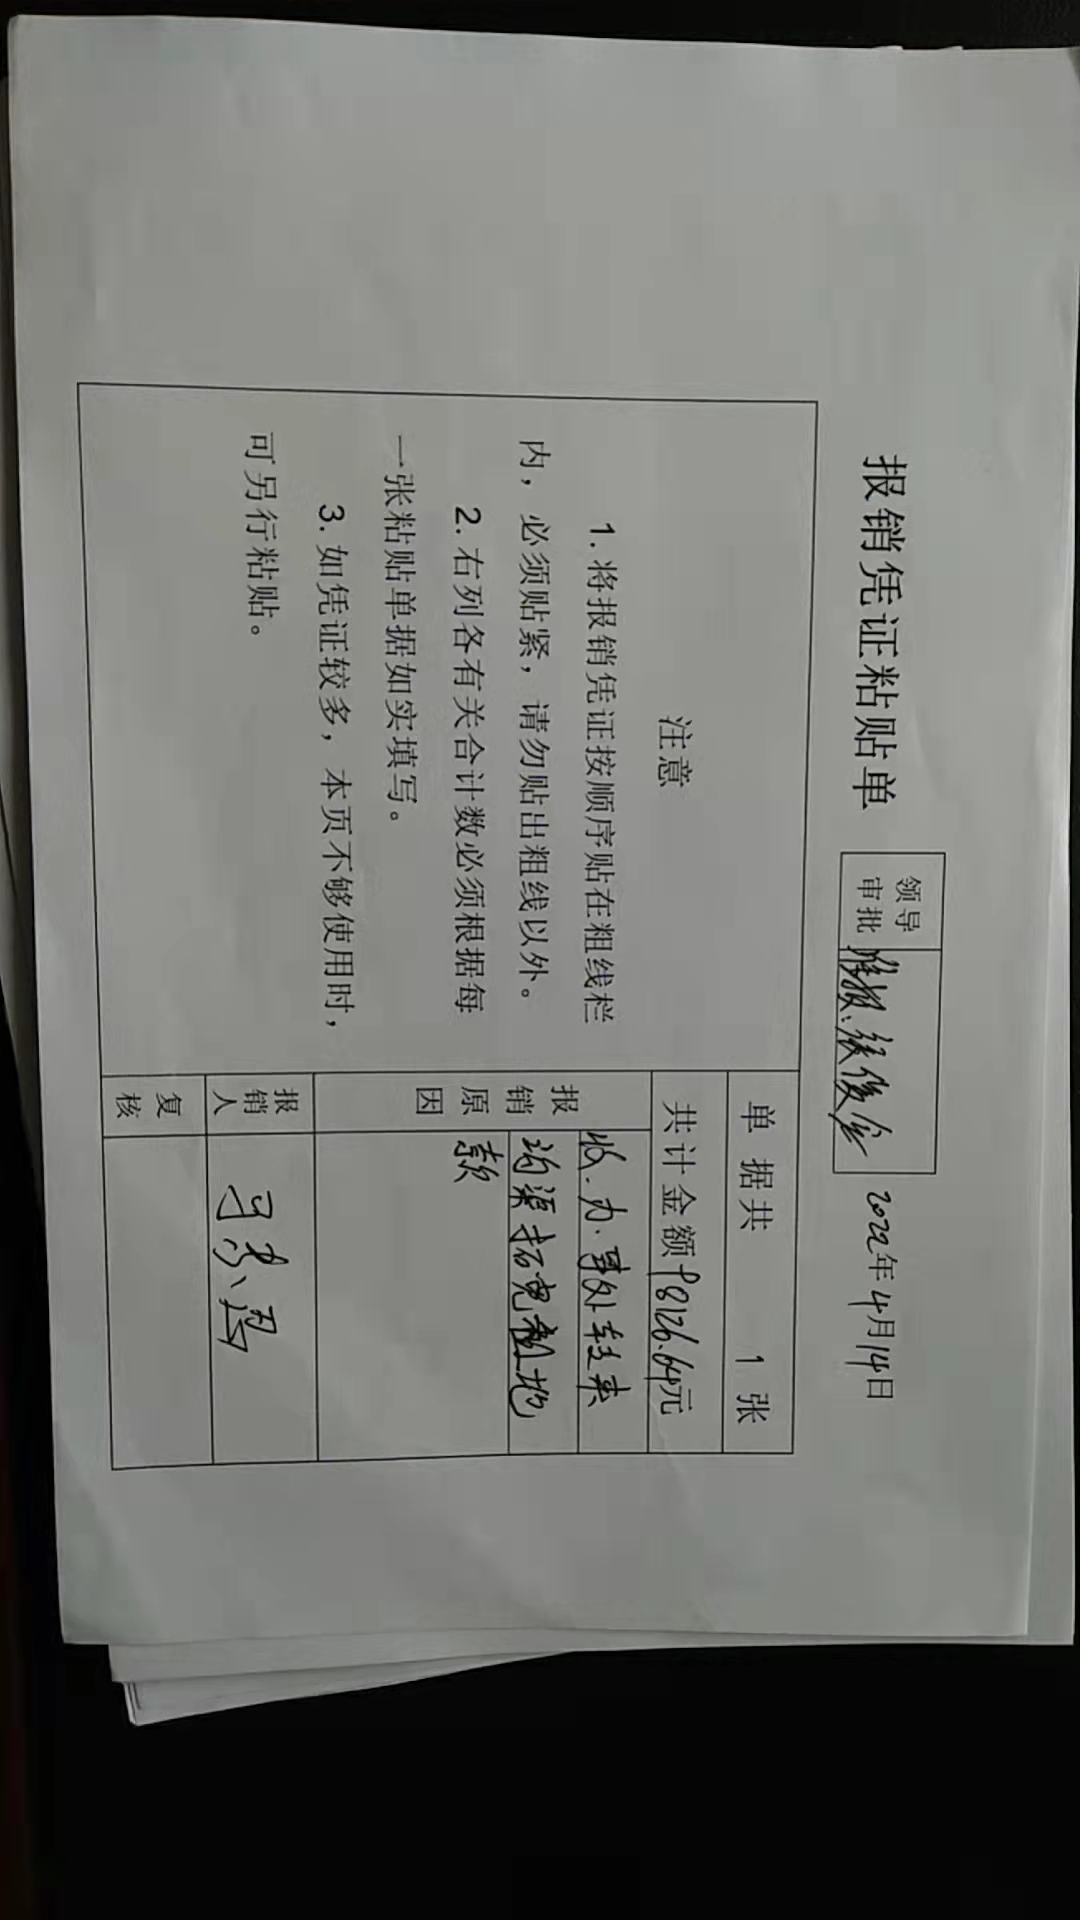 报销凭证粘贴单
领导
审批
准报.张俊
2022年4月14日
注意
1.将报销凭证按顺序贴在粗线栏
内，必须贴紧，请勿贴出粗线以外。
2.右列各有关合计数必须根据每
一张粘贴单据如实填写。
3.如凭证较多，本页不够使用时，
可另行粘贴。
单据共 1 张
共计金额 98126.64元
报销原因
收.办.事处转来
沟渠拓宽租地
款
报销人
复核